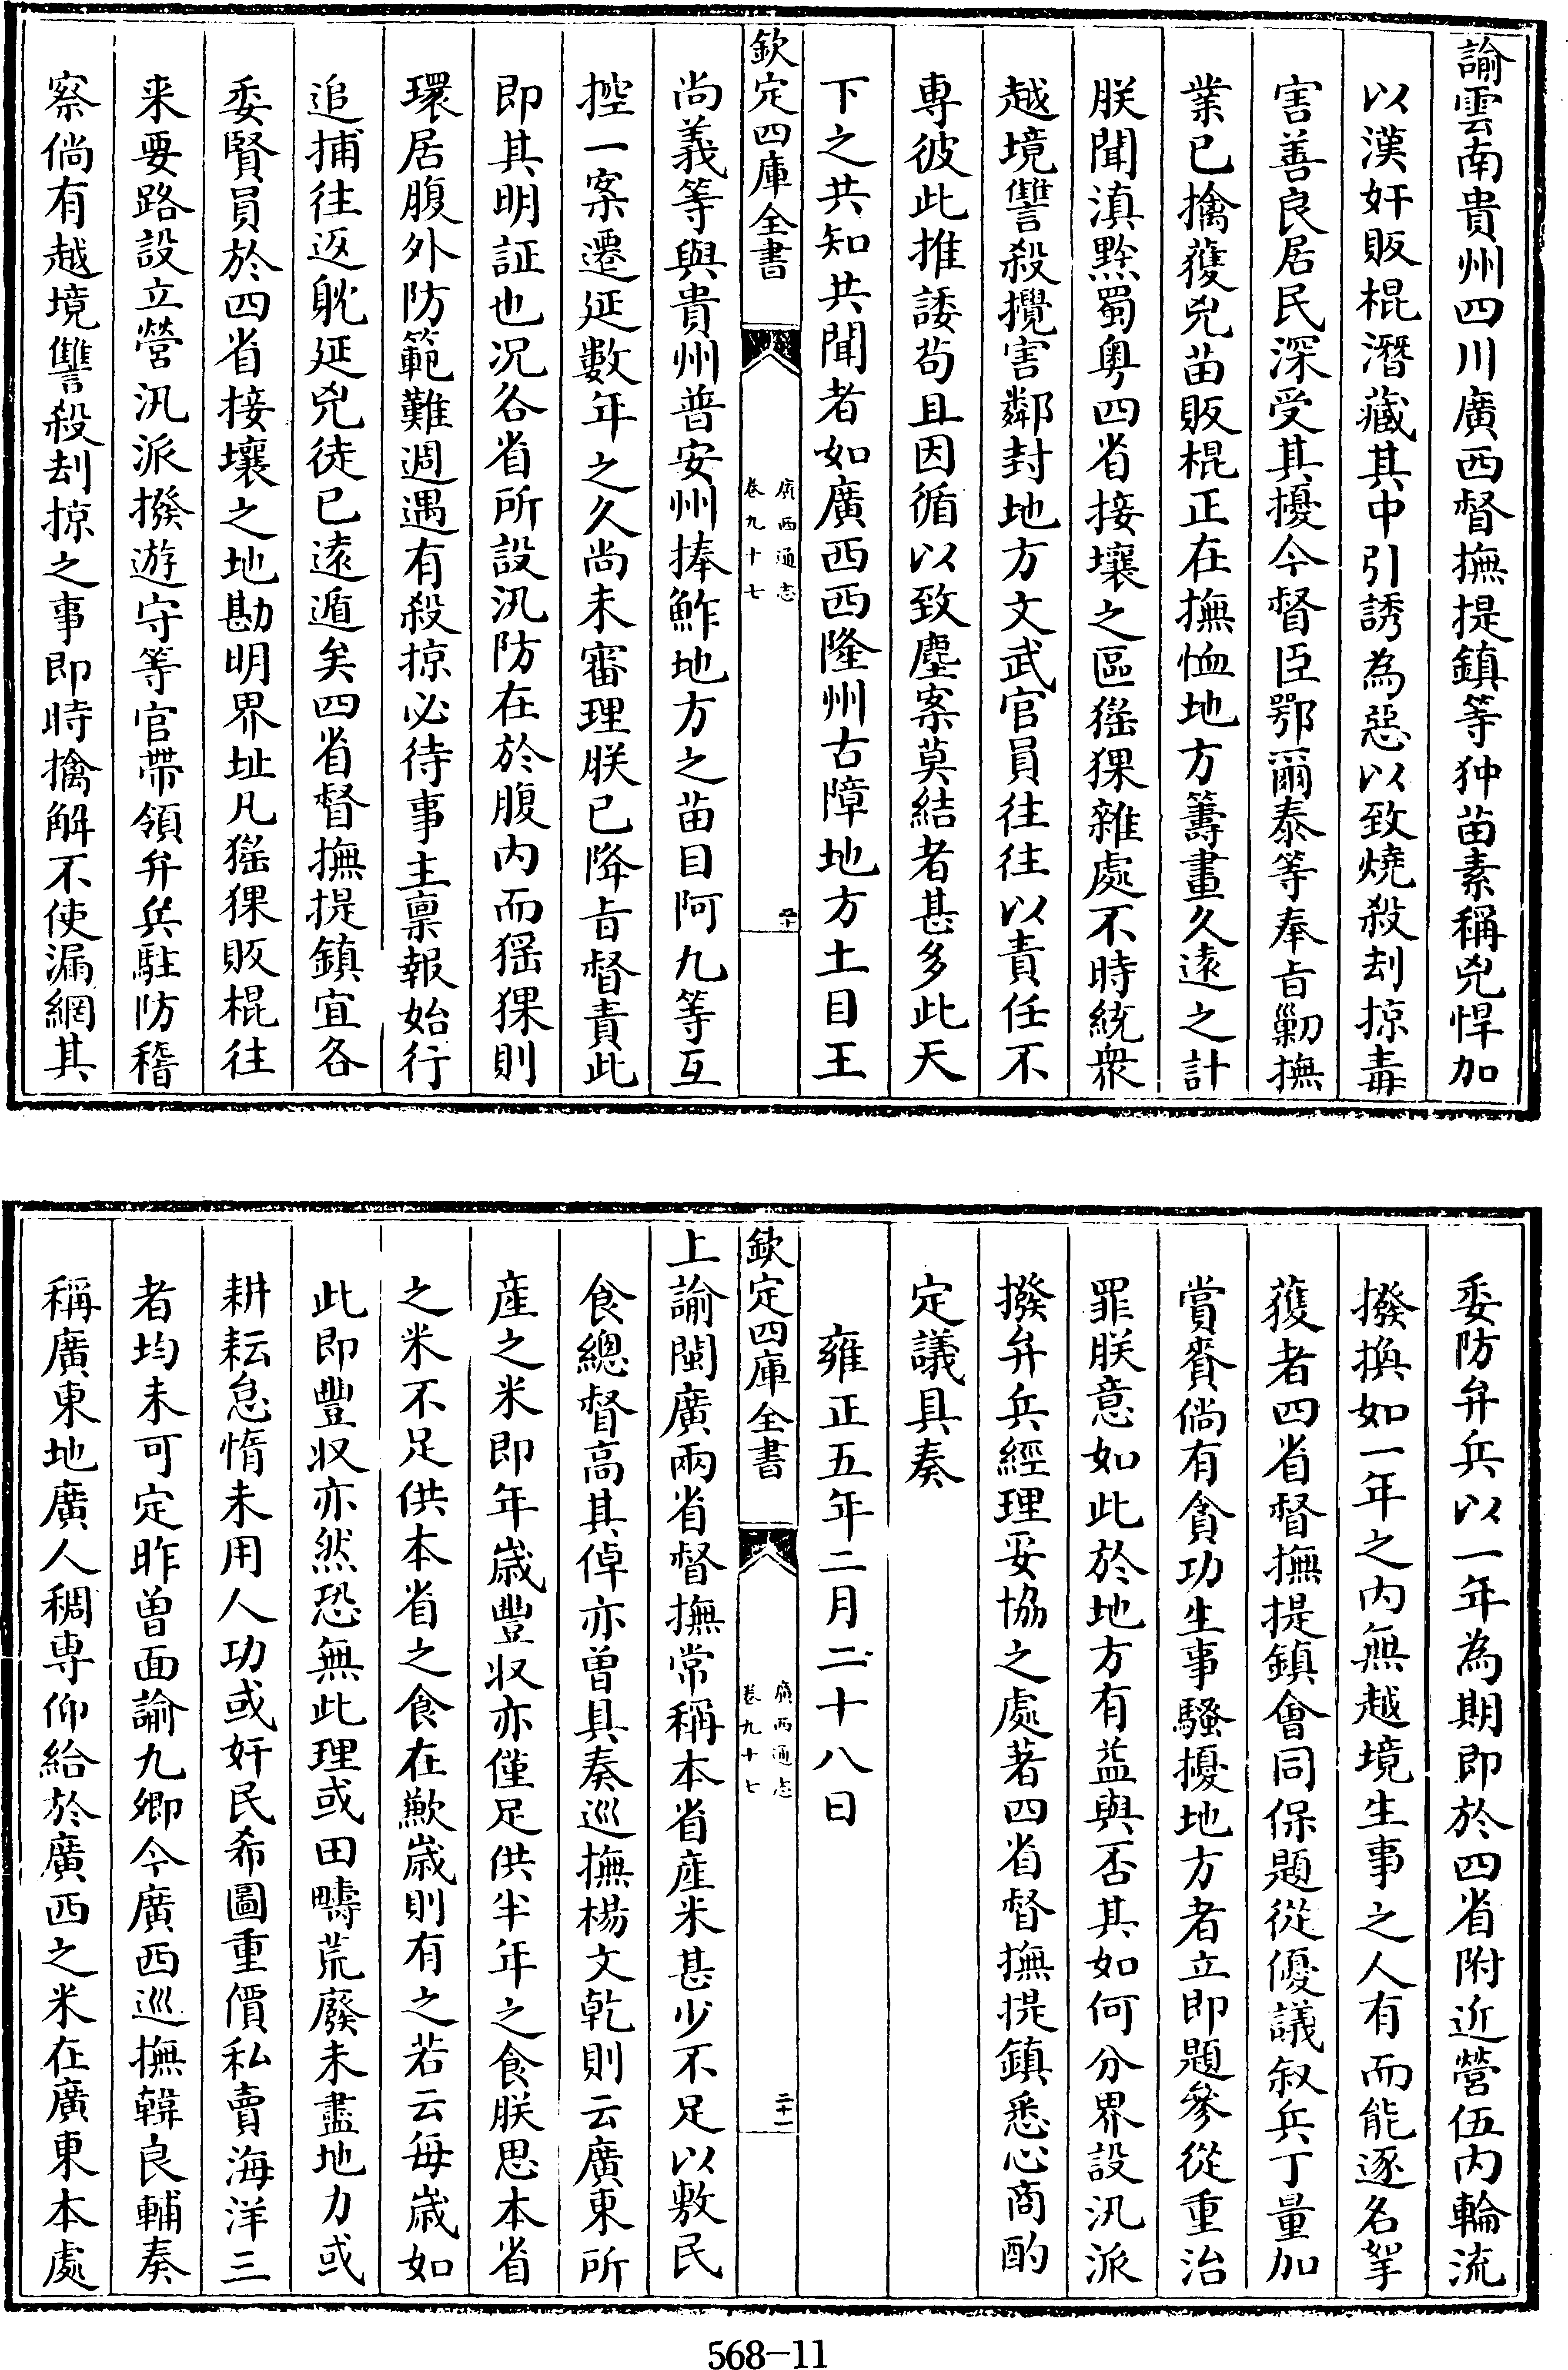 諭雲南貴州四川廣西督撫提鎮等狆苗素稱兇悍加
以漢奸販棍潛藏其中引誘為惡以致燒殺刦掠毒
害善良居民深受其擾今督臣鄂爾泰等奉㫖勦撫
業已擒獲兇苗販棍正在撫恤地方籌畫久遠之計
朕聞滇黔蜀粤四省接壤之區猺猓雜處不時統衆
越境讐殺攪害鄰封地方文武官員往往以責任不
専彼此推諉苟且因循以致塵案莫結者甚多此天
下之共知共聞者如廣西西隆州古障地方土目王
欽定四庫全書
廣西通志
卷九十七
二十
尚義等與貴州普安州捧鮓地方之苗目阿九等互
控一案遷延數年之久尚未審理朕已降㫖督責此
即其明証也况各省所設汛防在於腹内而猺猓則
環居腹外防範難週遇有殺掠必待事主禀報始行
追捕往返躭延兇徒已遠遁矣四省督撫提鎮宜各
委賢員於四省接壤之地勘明界址凡猺猓販棍往
来要路設立營汛派撥遊守等官帶領弁兵駐防稽
察倘有越境讐殺刦掠之事即時擒解不使漏網其
委防弁兵以一年為期即於四省附近營伍内輪流
撥換如一年之内無越境生事之人有而能逐名拏
獲者四省督撫提鎮會同保題從優議叙兵丁量加
賞賚倘有貪功生事騷擾地方者立即題參從重治
罪朕意如此於地方有益與否其如何分界設汛派
撥弁兵經理妥協之處著四省督撫提鎮悉心商酌
定議具奏
雍正五年二月二十八日
欽定四庫全書
廣西通志
卷九十七
二十一
上諭閩廣兩省督撫常稱本省産米甚少不足以敷民
食總督高其倬亦曾具奏巡撫楊文乾則云廣東所
産之米即年嵗豐収亦僅足供半年之食朕思本省
之米不足供本省之食在歉嵗則有之若云每嵗如
此即豐収亦然恐無此理或田疇荒廢未盡地力或
耕耘怠惰未用人功或奸民希圖重價私賣海洋三
者均未可定昨曾面諭九卿今廣西巡撫韓良輔奏
稱廣東地廣人稠専仰給於廣西之米在廣東本處
568-11